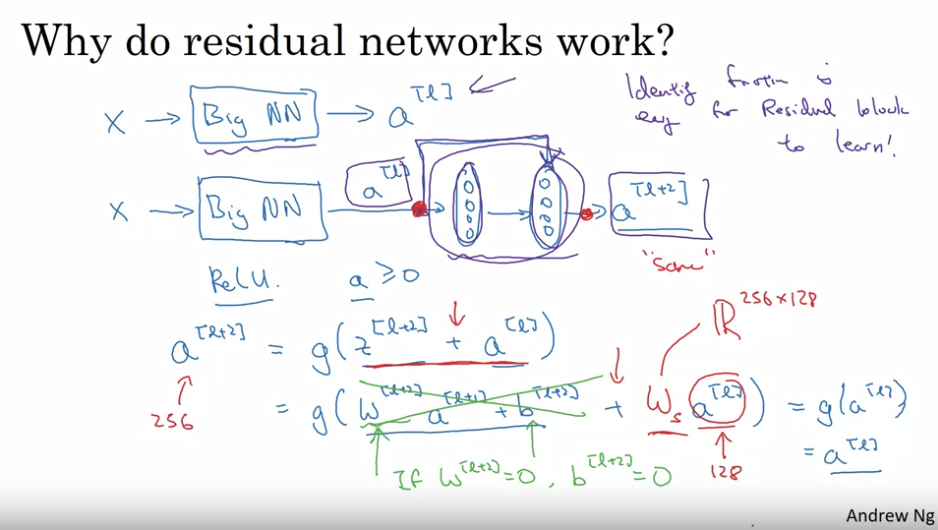 Why do residual networks work?
X → Big NN → a^[l]
Identity function is
easy for Residual block
to learn!
X → Big NN → a^[l] → a^[l+2]
"same"
ReLU. a ≥ 0
ℝ^256×128
a^[l+2] = g(z^[l+2] + a^[l])
256
= g(W^[l+2] a^[l+1] + b^[l+2] + W_s a^[l]) = g(a^[l])
= a^[l]
If W^[l+2] = 0, b^[l+2] = 0
128
Andrew Ng